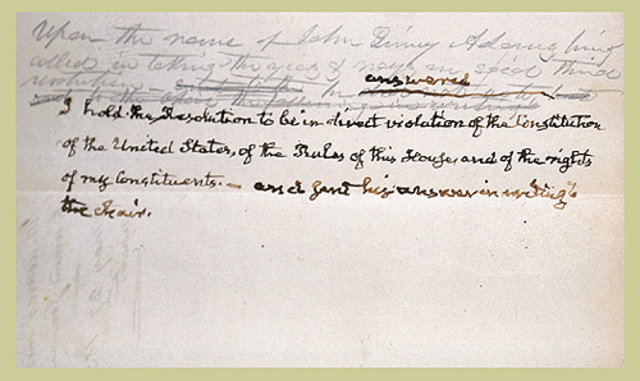 Upon the name of John Quincy Adams being
called in taking the yeas & nays on said third
resolution
answered
I hold the Resolution to be in direct violation of the Constitution
of the United States, of the Rules of this House, and of the rights
of my Constituents. — and sent his answer in writing to
the Chair.